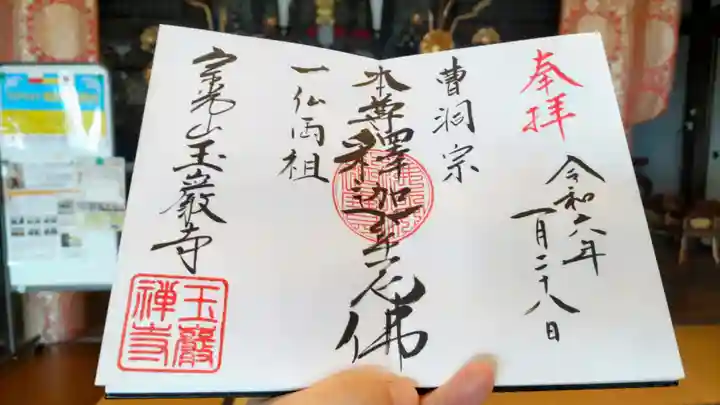 奉拝
令和六年
一月二十八日
曹洞宗
本尊釋迦牟尼佛
一仏両祖
宝光山玉巖寺
玉巖
禅寺